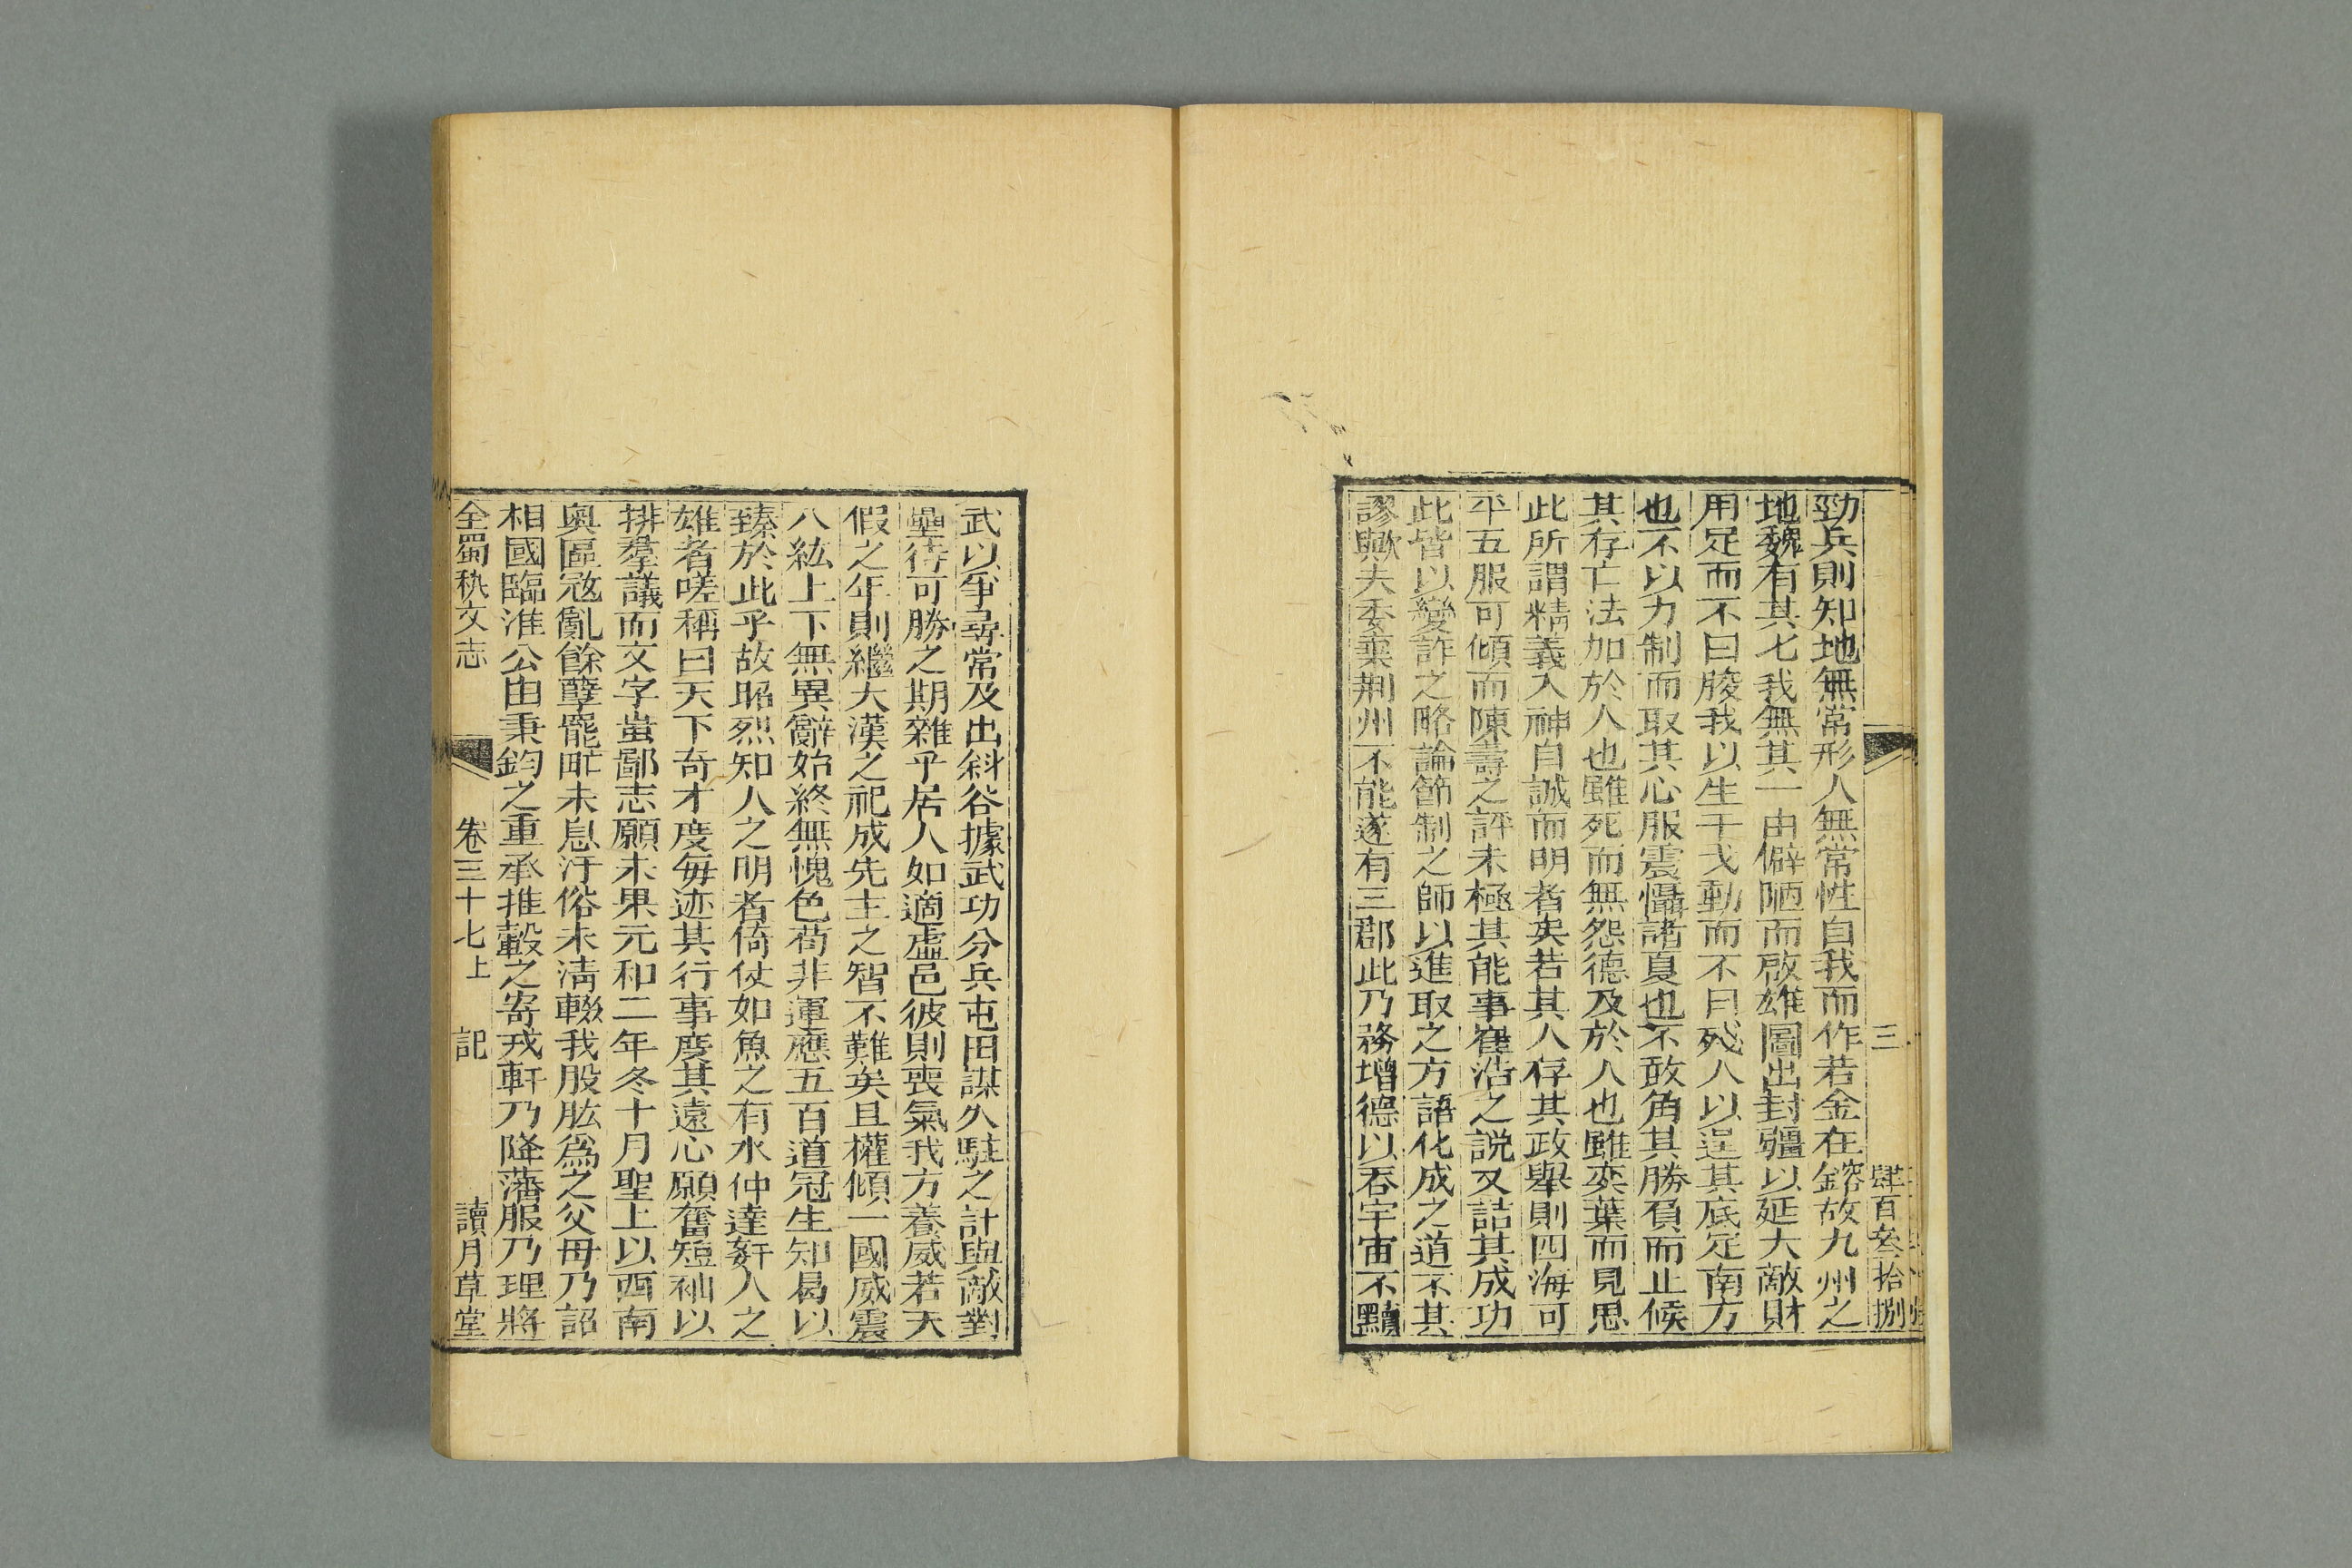 三 肆百叁拾捌
勁兵則知地無常形人無常性自我而作若金在鎔故九州之
地魏有其七我無其一由僻陋而啟雄圖出封疆以延大敵財
用足而不曰朘我以生干戈動而不曰殘人以逞其底定南方
也不以力制而取其心服震懾諸夏也不敢角其勝負而止候
其存亡法加於人也雖死而無怨德及於人也雖奕葉而見思
此所謂精義入神自誠而明者矣若其人存其政舉則四海可
平五服可傾而陳壽之評未極其能事崔浩之說又詰其成功
此皆以變詐之略論節制之師以進取之方語化成之道不其
謬歟夫委棄荆州不能遂有三郡此乃務增德以吞宇宙不黷
武以爭尋常及出斜谷據武功分兵屯田謀久駐之計與敵對
壘待可勝之期雜乎居人如適虛邑彼則喪氣我方養威若天
假之年則繼大漢之祀成先主之智不難矣且權傾一國威震
八紘上下無異辭始終無愧色苟非運應五百道冠生知曷以
臻於此乎故昭烈知人之明者倚仗如魚之有水仲達姧人之
雄者嗟稱曰天下奇才度每迹其行事度其遠心願奮短袖以
排羣議而文字蚩鄙志願未果元和二年冬十月聖上以西南
奧區寇亂餘孽罷甿未息汙俗未清輟我股肱爲之父母乃詔
相國臨淮公由秉鈞之重承推轂之寄戎軒乃降藩服乃理將
全蜀秇文志 卷三十七上 記 讀月草堂